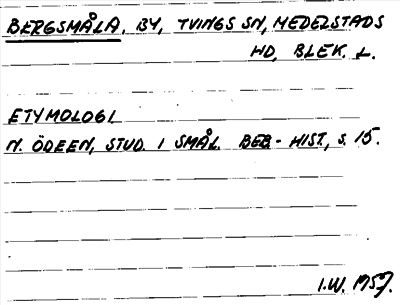 BERGSMÅLA. BY, TVINGS SN, MEDELSTADS
HD, BLEK. L.
ETYMOLOGI
N. ÖDEEN, STUD. I SMÅL. BEB-HIST., S. 15.
I.W. 1957.